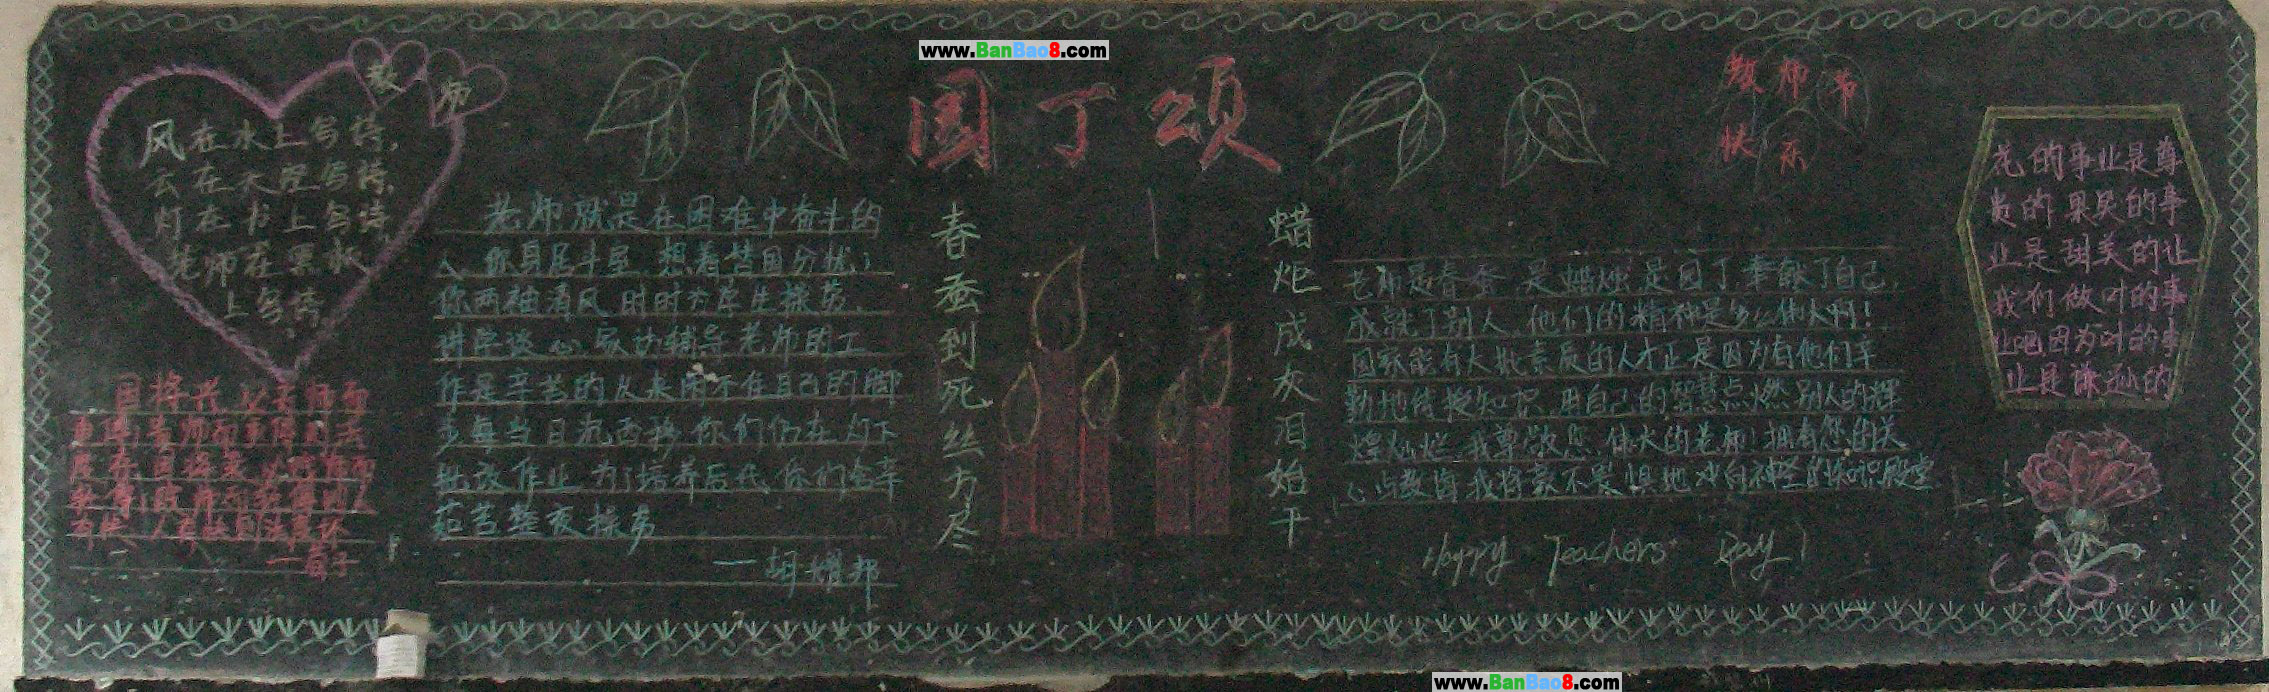 www.BanBao8.com
园丁颂
教师
风在水上写诗,
云在天空写诗,
灯在书上写诗,
老师在黑水
上写诗
国将兴,必贵师而
一荀子
老师就是在困难中奋斗的
人,你身居斗室,想着替国分忧;
你两袖清风,时时为学生操劳,
讲学谈心,家访辅导老师的工
作是辛苦的从来闲不住自己的脚
步每当日
批改作业,为了培养后代,你们含辛
茹苦整夜操劳
一胡耀邦
春蚕到死丝方尽
蜡炬成灰泪始干
师节
快乐
老师是春蚕,是蜡烛,是园丁奉献了自己,
成就了别人,他们的精神是多么伟大啊!
国家能有大批素质的人才正是因为有他们辛
勤地传授知识,用自己的智慧点燃别人的辉
煌灿烂,我尊敬您,伟大的老师!拥有您的关
心与教诲,我将毫不畏惧地 向神圣的知识殿堂
Happy Teachers' Day!
花的事业是尊
贵的果实的事
业是甜美的让
我们做叶的事
业吧因为叶的事
业是谦逊的
www.BanBao8.com